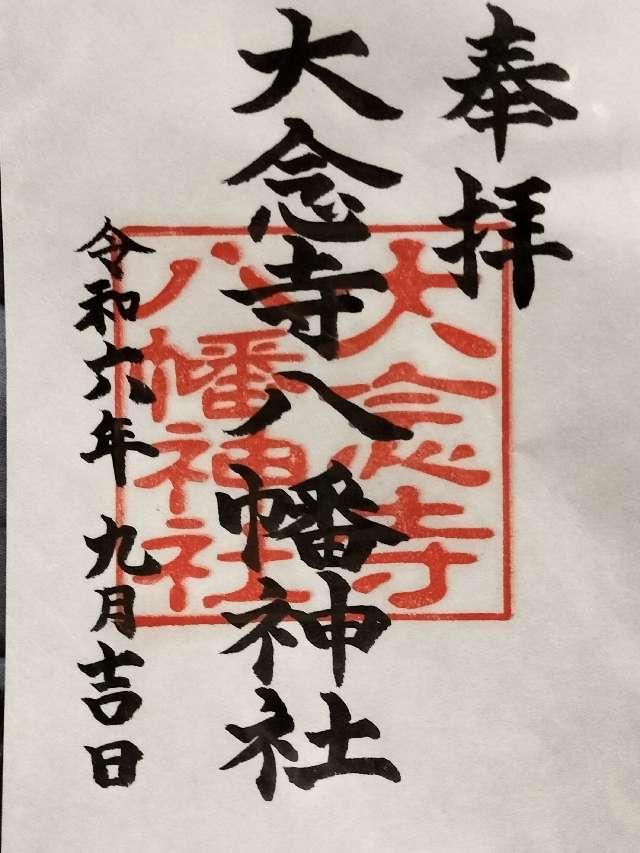 奉拝
大念寺八幡神社
大念寺
八幡神社
令和六年九月吉日